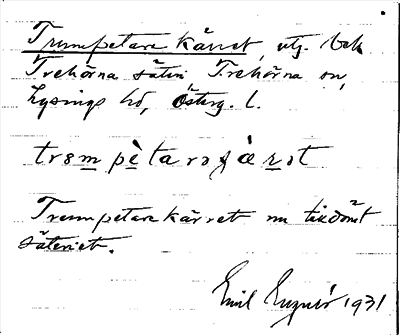 Trumpetare kärret, utg. bek
Trehörna säteri Trehörna sn,
Lysings hd, Österg. l.
trɞmpètarəʃàrət
Trumpetarekärret nu tillhört
säteriet.
Emil 1931